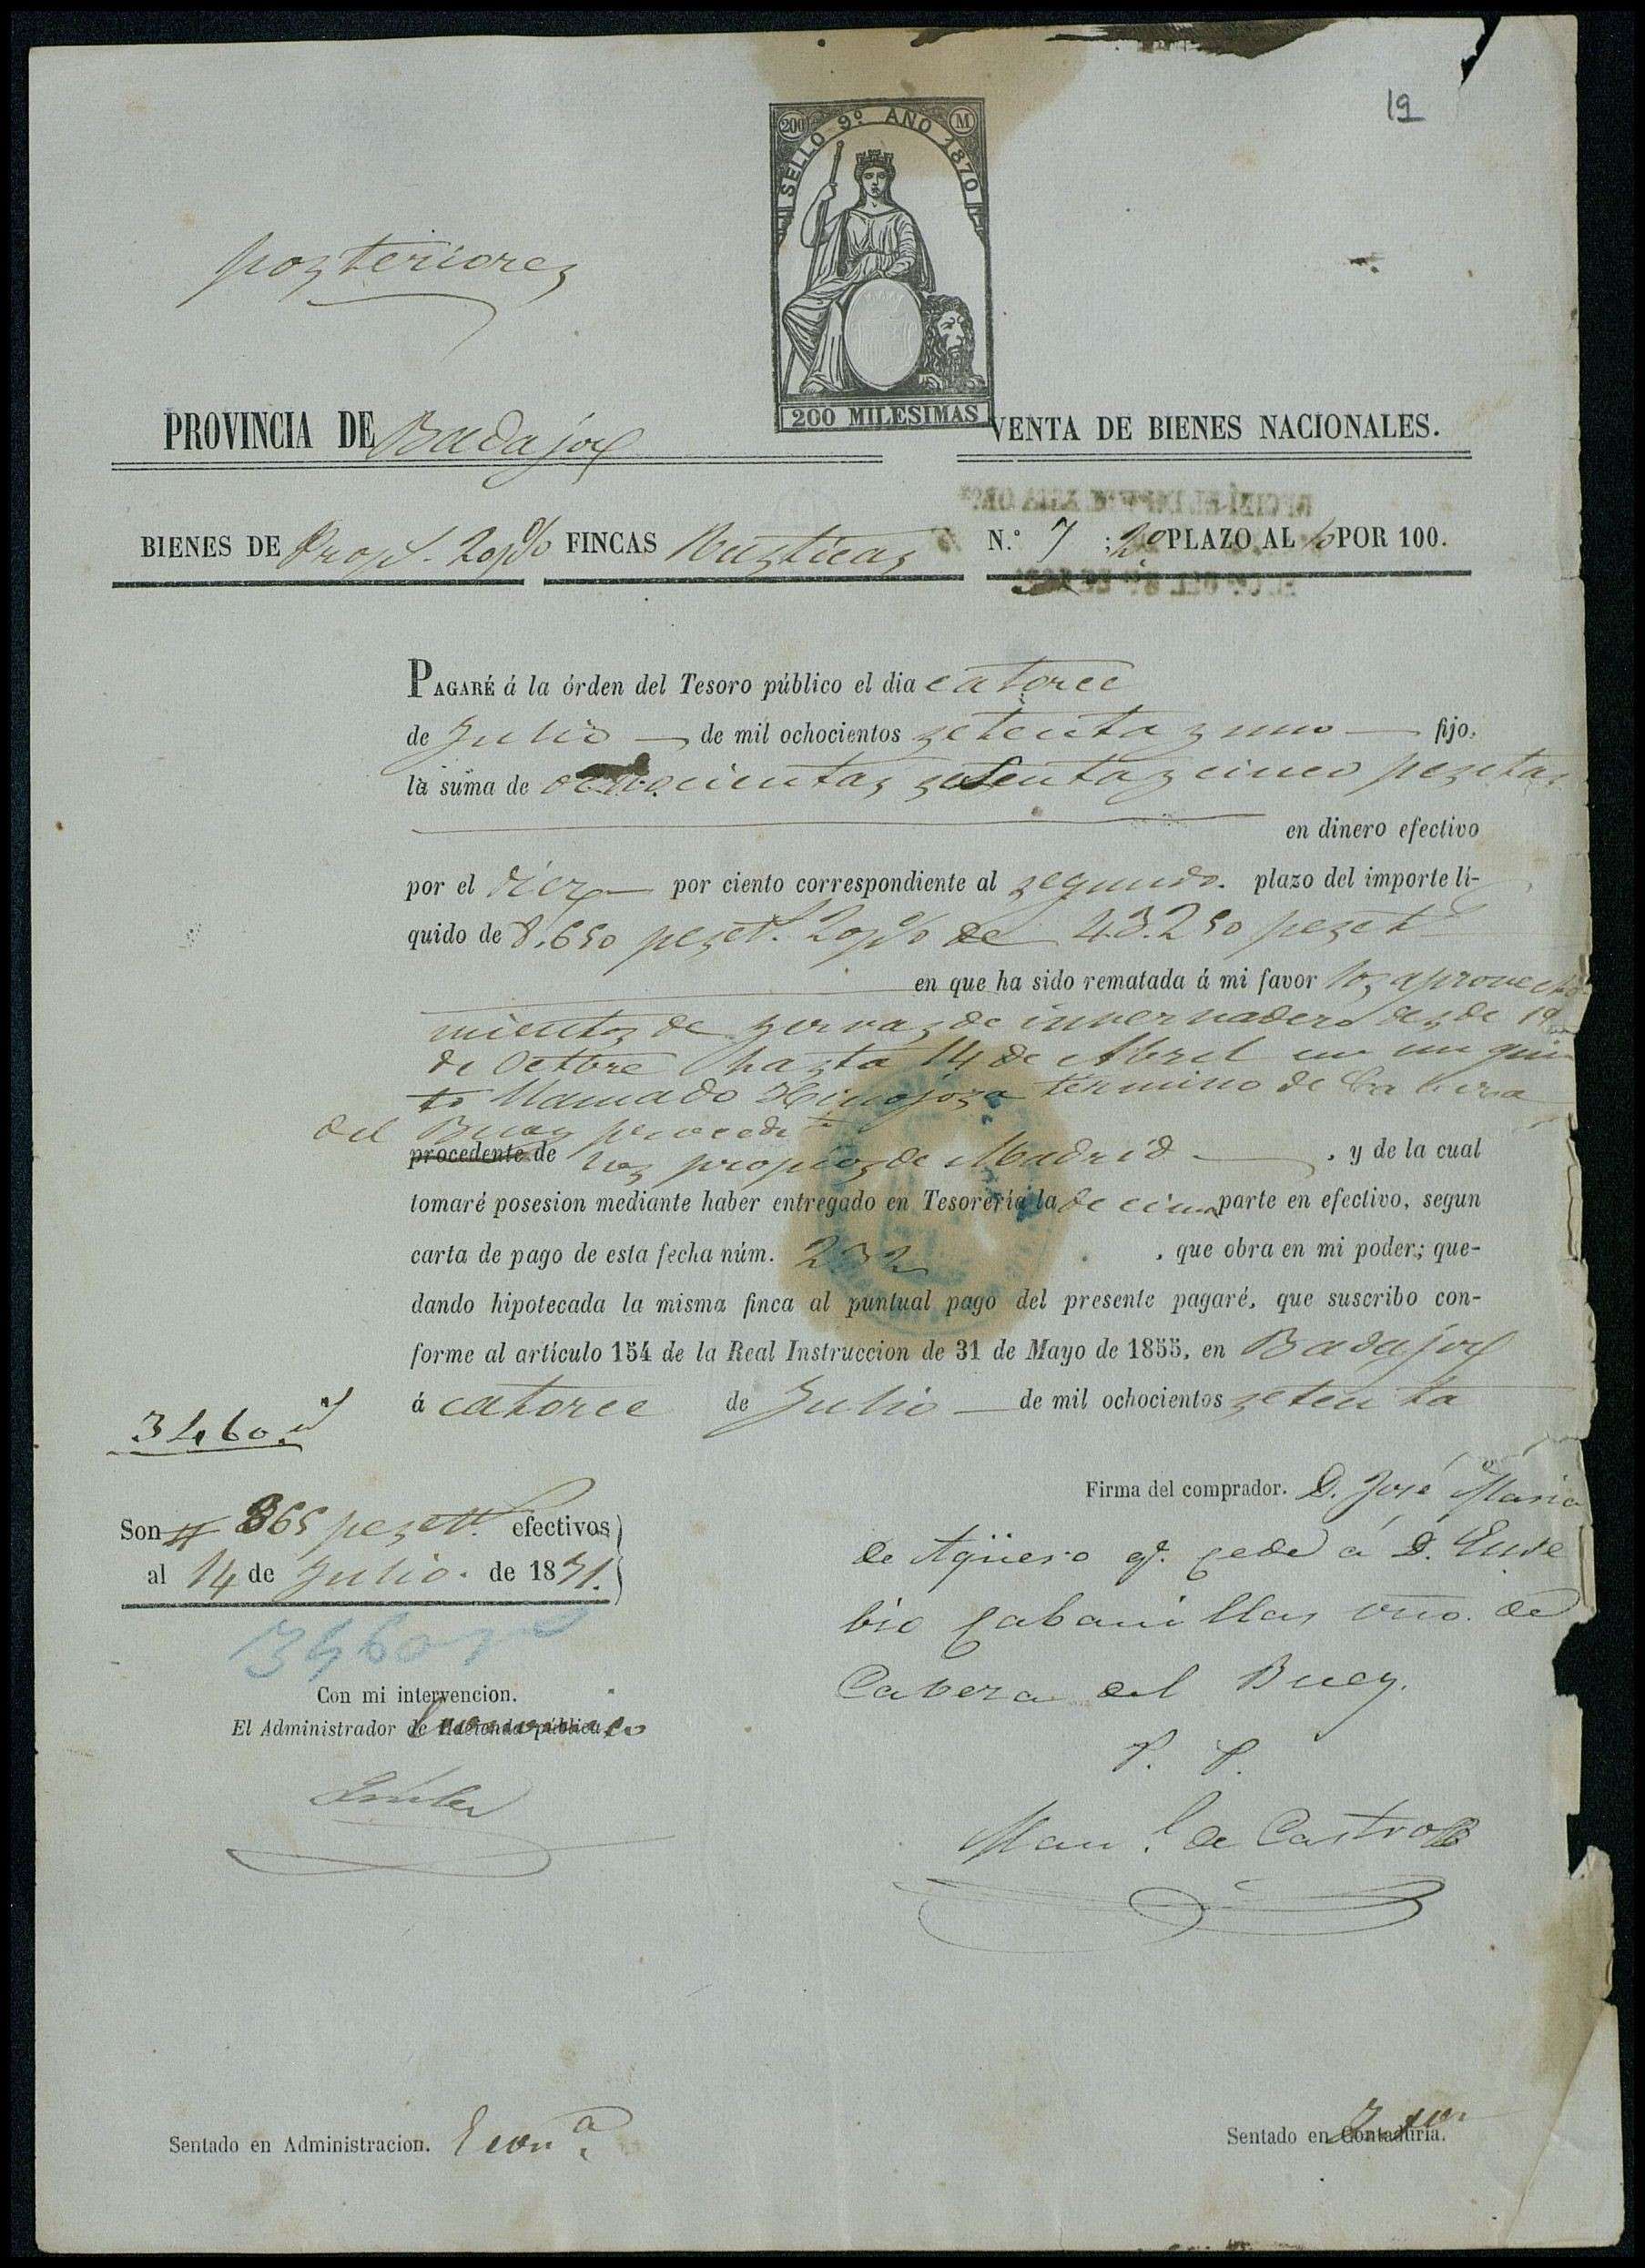 19
200 SELLO 9º AÑO 1870 M
200 MILESIMAS
posteriores
PROVINCIA DE Badajoz
VENTA DE BIENES NACIONALES.
BIENES DE Prop.s 20p% FINCAS Rusticas N.º 7 ; 2º PLAZO AL 10 POR 100.
PAGARÉ á la órden del Tesoro público el dia catorce
de Julio de mil ochocientos setenta y uno fijo,
la suma de ochocientas sesenta y cinco pesetas
en dinero efectivo
por el diez por ciento correspondiente al segundo. plazo del importe lí-
quido de 8.650 peset.s 20p% de 43.250 peset.s
en que ha sido rematada á mi favor los aprovecha
mientos de yervas de invernadero desde 1º
de Octbre hasta 14 de Abril en un quin
to llamado Hinojosa término de Cabeza
del Buey procedte
procedente de los propios de Madrid , y de la cual
tomaré posesion mediante haber entregado en Tesorería la decima parte en efectivo, segun
carta de pago de esta fecha núm. 232 , que obra en mi poder; que-
dando hipotecada la misma finca al puntual pago del presente pagaré, que suscribo con-
forme al artículo 154 de la Real Instruccion de 31 de Mayo de 1855, en Badajoz
á catorce de Julio de mil ochocientos setenta
3460 r.s
Firma del comprador. D. José Maria
de Agüero q.e cede á D. Euse
bio Cabanillas vno. de
Cabeza del Buey.
P. P.
Man.l de Castro
Son # 865 peset.s efectivos
al 14 de Julio. de 1871.
3460 rs
Con mi intervencion.
El Administrador de Hacienda pública
Sentado en Administracion. Econ.a
Sentado en Contaduría. Inter